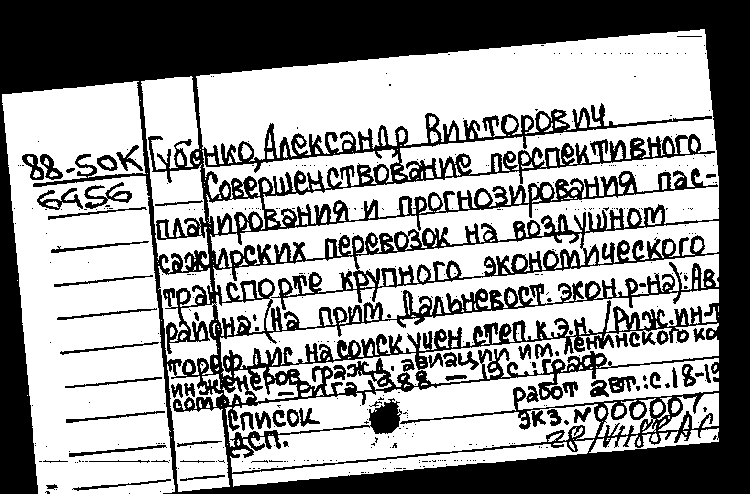 Губенко, Александр Викторович.
88-50К
6456
Совершенствование перспективного
планирования и прогнозирования пас-
сажирских перевозок на воздушном
транспорте крупного экономического
района: (На прим. Дальневост. экон. р-на): Ав-
тореф. дис. на соиск. учен. степ. к.э.н. /Риж. ин-т
инженеров гражд. авиации им. Ленинского ко
сомола. – Рига, 1988. – 19 с.: граф.
список работ авт.: с. 18-19
ДСП. экз. N000007.
28/VII88. АС.